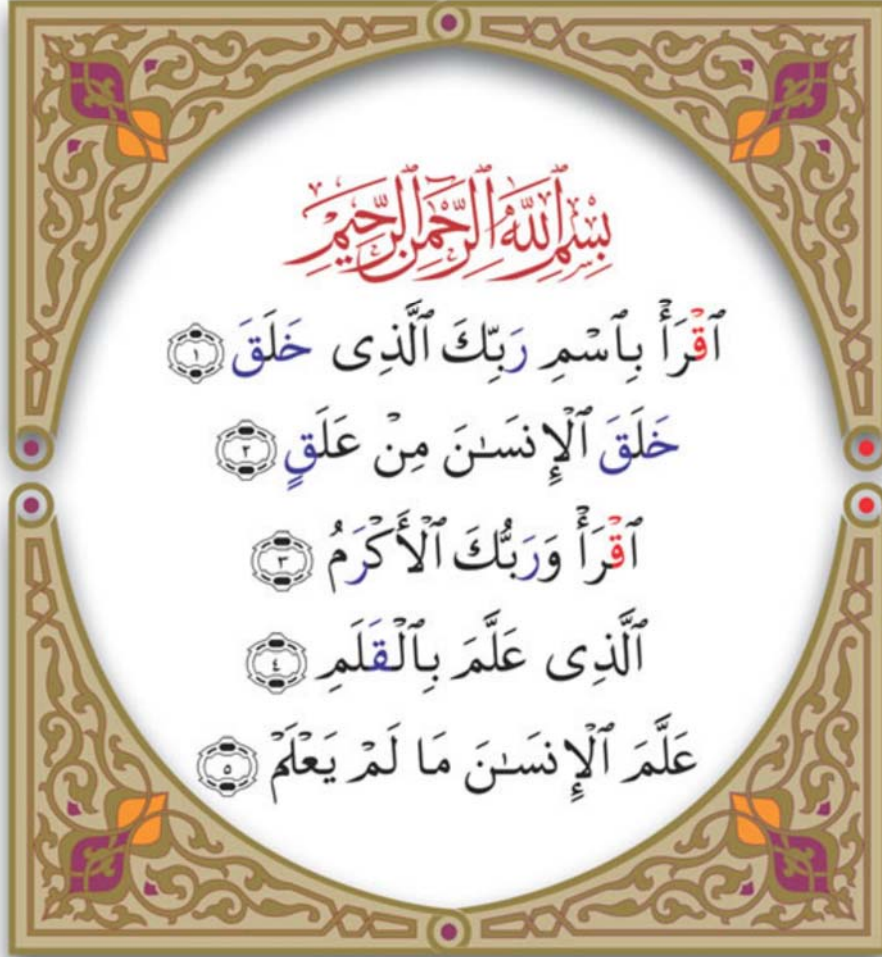 بِسْمِ ٱللَّهِ ٱلرَّحْمَٰنِ ٱلرَّحِيمِ
ٱقْرَأْ بِٱسْمِ رَبِّكَ ٱلَّذِى خَلَقَ ١
خَلَقَ ٱلْإِنسَـٰنَ مِنْ عَلَقٍ ٢
ٱقْرَأْ وَرَبُّكَ ٱلْأَكْرَمُ ٣
ٱلَّذِى عَلَّمَ بِٱلْقَلَمِ ٤
عَلَّمَ ٱلْإِنسَـٰنَ مَا لَمْ يَعْلَمْ ٥